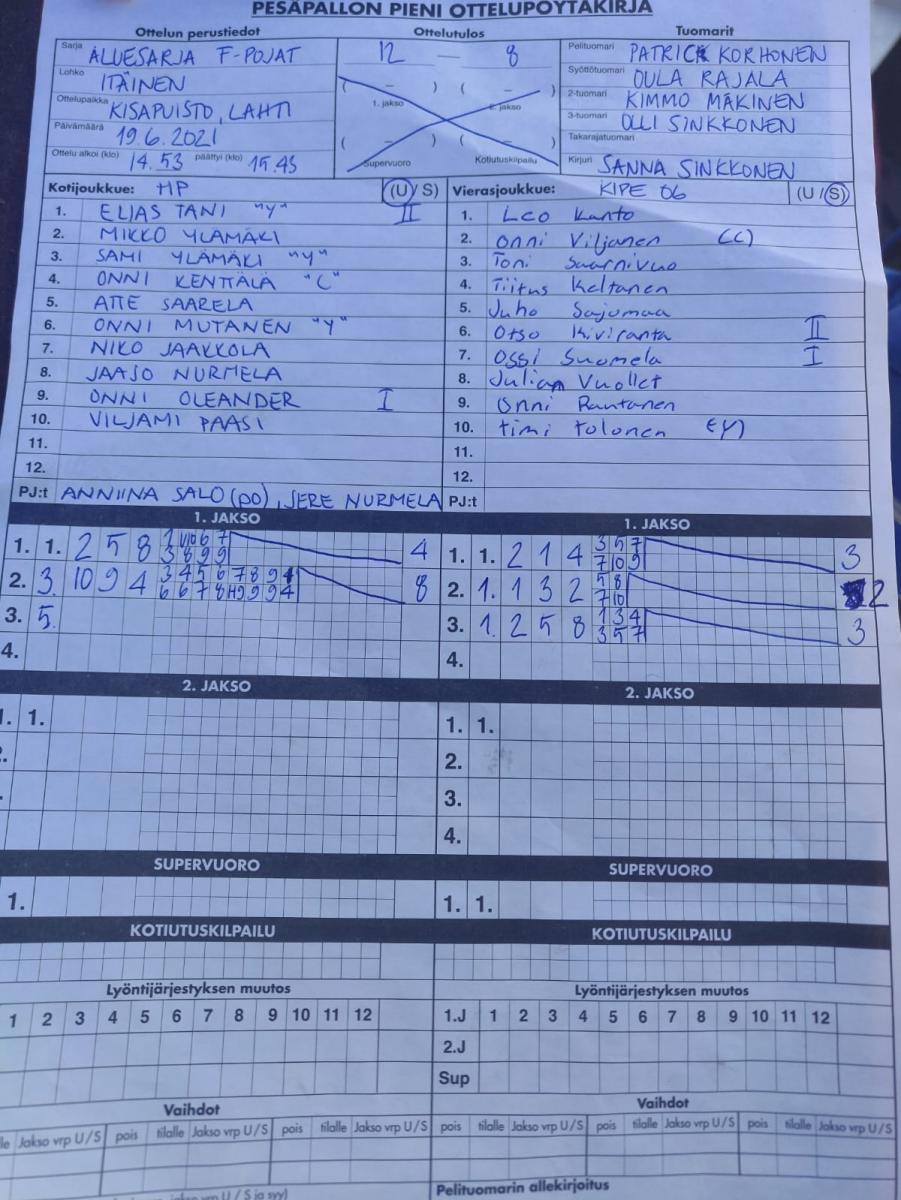 PESÄPALLON PIENI OTTELUPÖYTÄKIRJA
Ottelun perustiedot
Ottelutulos
Tuomarit
Sarja ALUESARJA F-POJAT
12 — 8
Pelituomari PATRICK KORHONEN
Lohko ITÄINEN
( – ) ( – )
Syöttötuomari OULA RAJALA
1. jakso 2. jakso
2-tuomari KIMMO MÄKINEN
Ottelupaikka KISAPUISTO, LAHTI
3-tuomari OLLI SINKKONEN
Päivämäärä 19.6.2021
( – ) ( – )
Takarajatuomari
Ottelu alkoi (klo) 14.53 päättyi (klo) 15.45
Supervuoro Kotiutuskilpailu
Kirjuri SANNA SINKKONEN
Kotijoukkue: HP (U/S)
Vierasjoukkue: KIPE 06 (U/S)
1. ELIAS TANI "Y" II
2. MIKKO YLÄMÄKI
3. SAMI YLÄMÄKI "Y"
4. ONNI KENTTÄLÄ "C"
5. ATTE SAARELA
6. ONNI MUTANEN "Y"
7. NIKO JAAKKOLA
8. JAAJO NURMELA
9. ONNI OLEANDER I
10. VILJAMI PAASI
11.
12.
PJ:t ANNIINA SALO (PO), JERE NURMELA
1. Leo Kanto
2. Onni Viljanen (C)
3. Toni Saarnivuo
4. Tiitus Keltanen
5. Juho Sajomaa
6. Otso Kiviranta II
7. Ossi Suomela I
8. Julian Vuollet
9. Onni Rautanen
10. timi tolonen (Y)
11.
12.
PJ:t
1. JAKSO
1. 1. 2 5 8 4
2. 3. 10 9 4 3 4 5 6 7 8 9 1 8
3. 5.
4.
1. JAKSO
1. 1. 2 1 4 3 5 7 3
7 10 9
2. 1. 1 3 2 5 8 2
7 10
3. 1. 2 5 8 1 3 4 3
3 5 7
4.
2. JAKSO
1. 1.
2. JAKSO
1. 1.
2.
3.
4.
SUPERVUORO
1.
SUPERVUORO
1. 1.
KOTIUTUSKILPAILU
KOTIUTUSKILPAILU
Lyöntijärjestyksen muutos
1 2 3 4 5 6 7 8 9 10 11 12
Lyöntijärjestyksen muutos
1.J 1 2 3 4 5 6 7 8 9 10 11 12
2.J
Sup
Vaihdot
Vaihdot
Jakso vrp U/S pois tilalle Jakso vrp U/S pois tilalle Jakso vrp U/S
pois tilalle Jakso vrp U/S pois tilalle Jakso vrp U/S pois tilalle Jakso vrp U/S
jakso vrp U / S ja syy)
Pelituomarin allekirjoitus